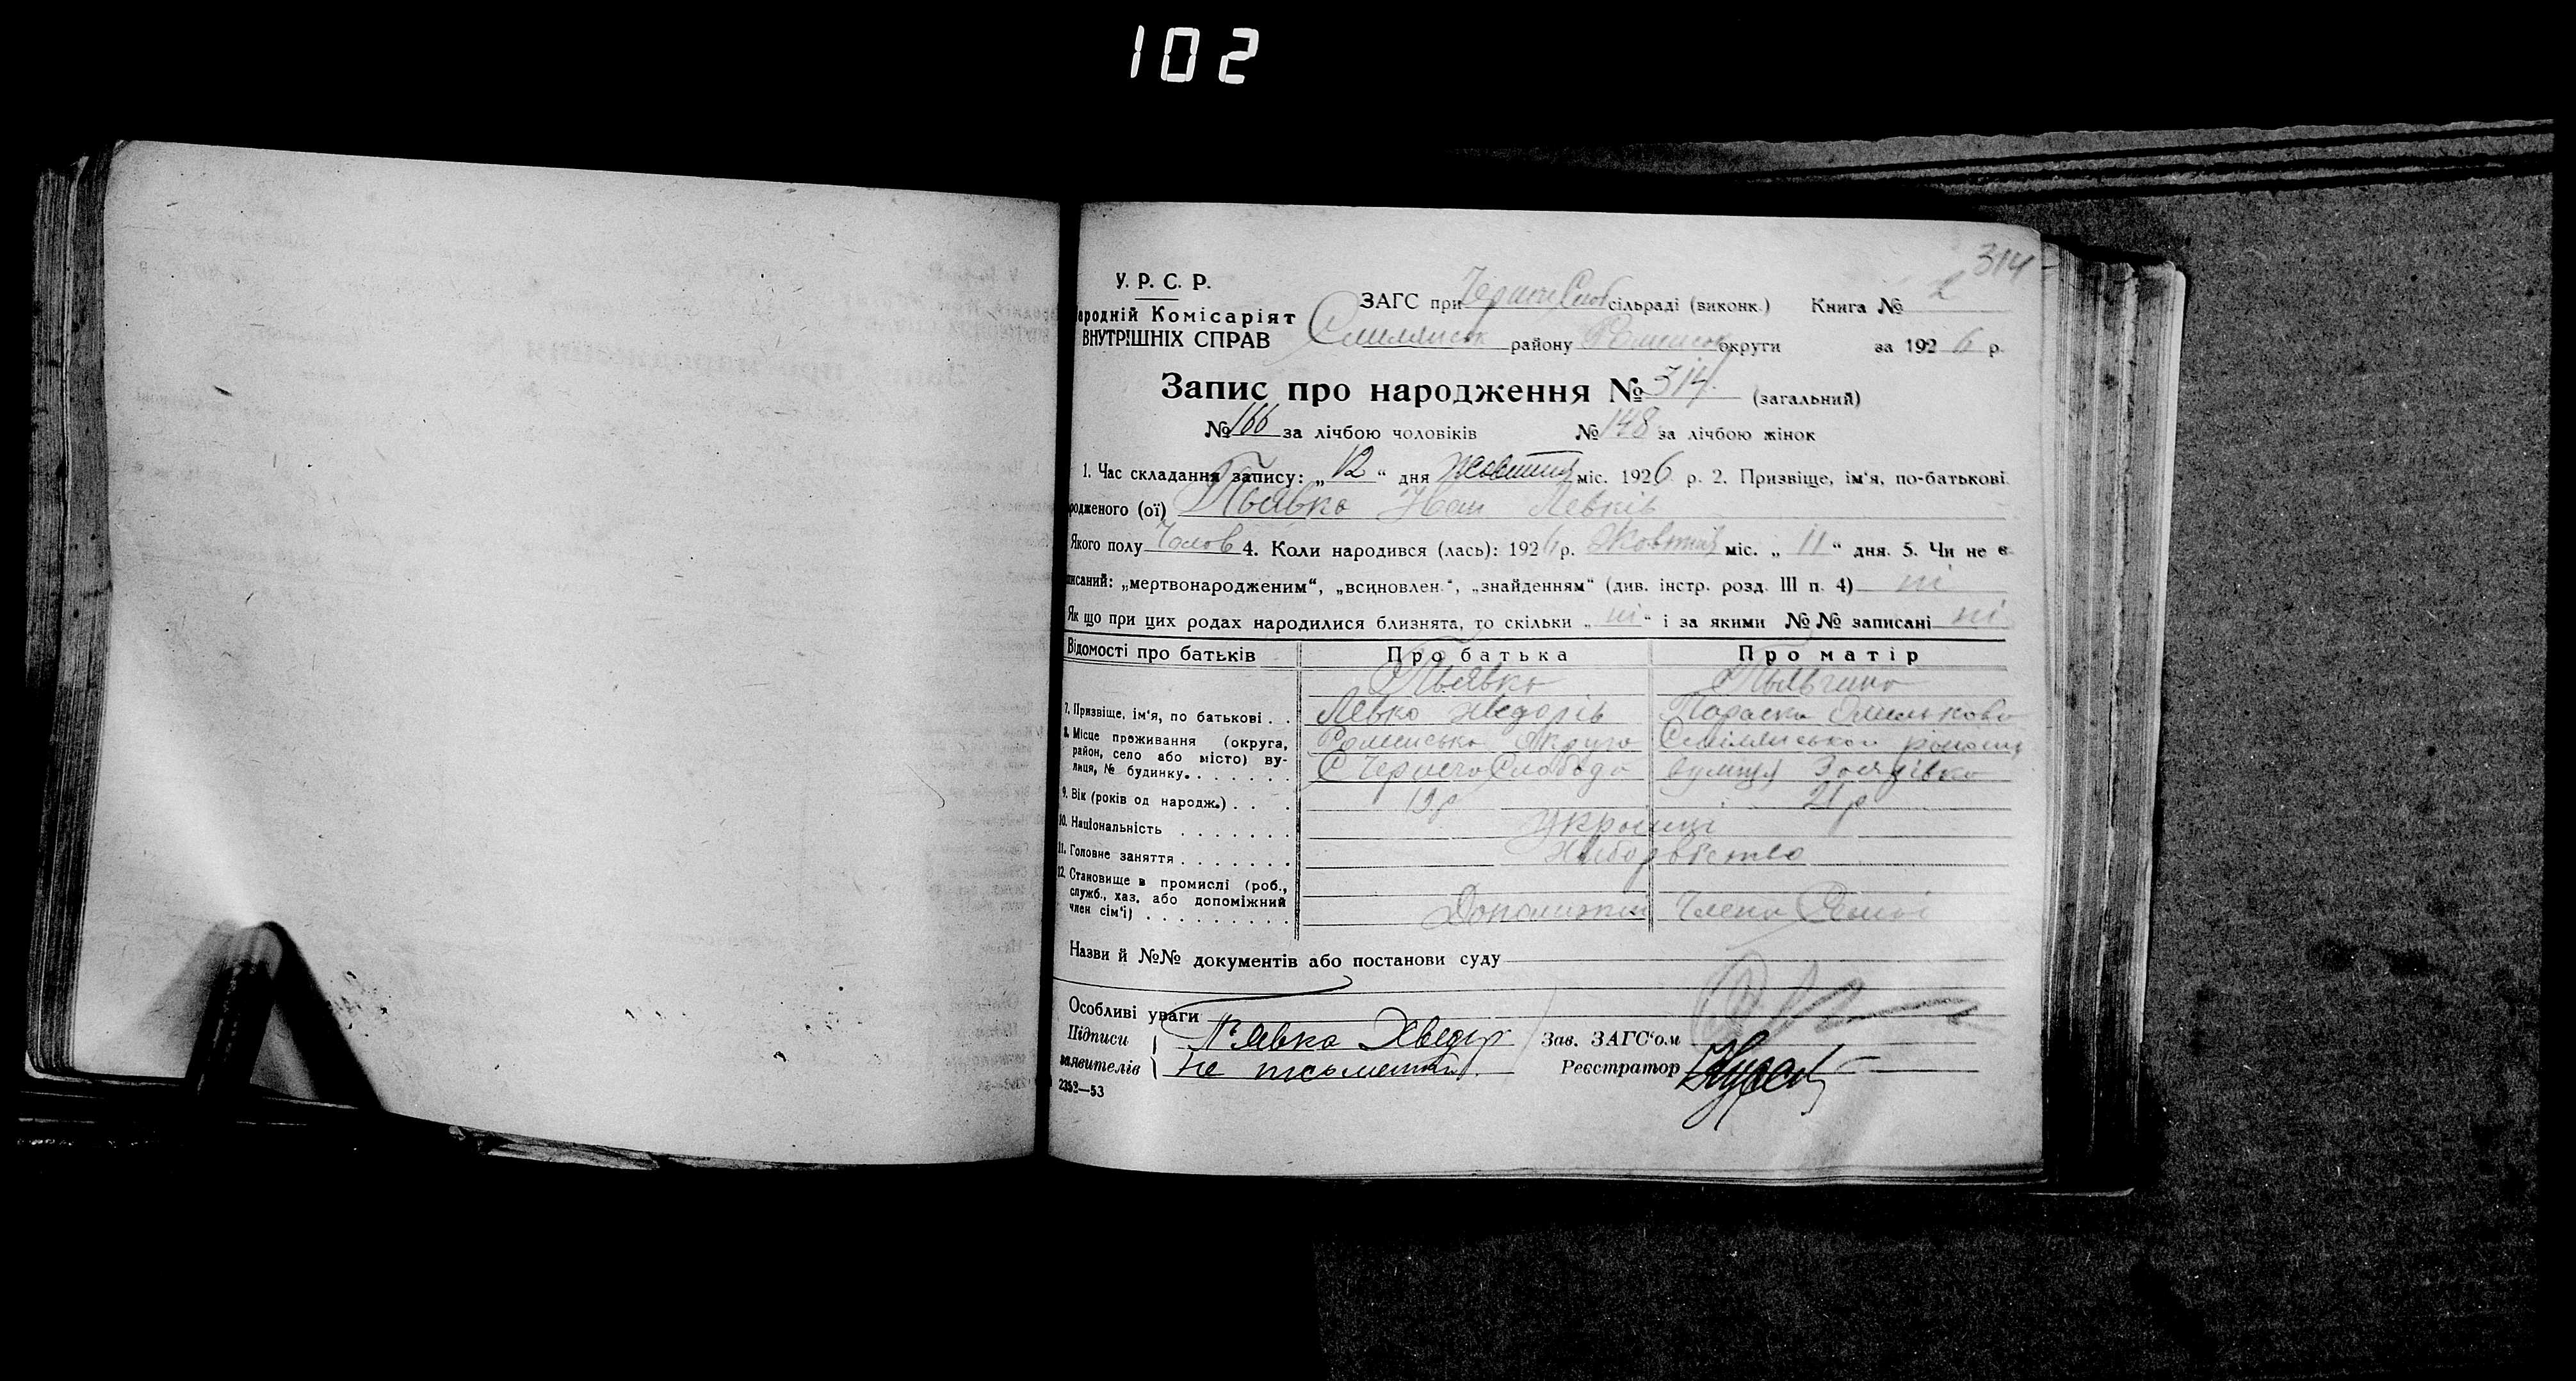 102
314
У. Р. С. Р.
ародній Комісаріят
ВНУТРІШНІХ СПРАВ
ЗАГС при Чернеч Слоб сільраді (виконк.) Книга № 2
Смілянськ району Роменсов округи за 1926 р.
Запис про народження № 314. (загальний)
№ 166 за лічбою чоловіків № 148 за лічбою жінок
1. Час складання запису: „12“ дня Жовтня міс. 1926 р. 2. Призвіще, ім'я, по-батькові
родженого (ої) Пьявка Іван Левків
Якого полу Чолов 4. Коли народився (лась): 1926 р. Жовтня міс. „11“ дня. 5. Чи не є
писаний: „мертвонародженим“, „всиновлен.“, „знайденням“ (див. інстр. розд. III п. 4) ні
Як що при цих родах народилися близнята, то скільки „ні“ і за якими №№ записані ні
Відомості про батьків Про батька Про матір
Пьявка
7. Призвіще, ім'я, по батькові . . Левко Хведорів Параска Омелькова
8. Місце проживання (округа, район, село або місто) вулиця, № будинку. . . . . . . Роменська Округа Смілянського району
С Чернеча Слобода вулиця
9. Вік (років од народж.) . . . 19 р 21 р
10. Національність . . . . . . . Українці
11. Головне заняття . . . . . . . Хліборобство
12. Становище в промислі (роб., служб., хаз. або допоміжний член сім'ї) . . . . . . . . . Допоміжні Члени Семьі
Назви й №№ документів або постанови суду
Особливі уваги
Підписи П'явка Хведір Зав. ЗАГС'ом
заявителів не письменний. Реєстратор
2352—53